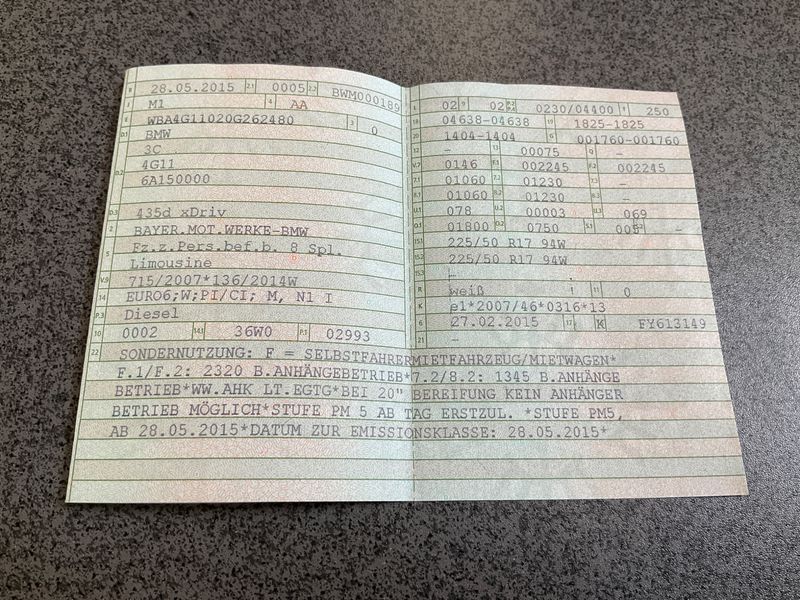 B 28.05.2015 2.1 0005 2.2 BWM000189
J M1 4 AA
E WBA4G11020G262480 3 0
D.1 BMW
3C
D.2 4G11
6A150000
D.3 435d xDriv
2 BAYER.MOT.WERKE-BMW
5 Fz.z.Pers.bef.b. 8 Spl.
Limousine
V.9 715/2007*136/2014W
14 EURO6;W;PI/CI; M, N1 I
P.3 Diesel
10 0002 14.1 36W0 P.1 02993
L 02 9 02 P.2 P.4 0230/04400 T 250
18 04638-04638 19 1825-1825
20 1404-1404 G 001760-001760
12 – 13 00075 Q –
V.7 0146 F.1 002245 F.2 002245
7.1 01060 7.2 01230 7.3 –
8.1 01060 8.2 01230 8.3 –
U.1 078 U.2 00003 U.3 069
O.1 01800 O.2 0750 S.1 005 S.2 –
15.1 225/50 R17 94W
15.2 225/50 R17 94W
15.3 –
R weiß 11 0
K e1*2007/46*0316*13
6 27.02.2015 17 K 16 FY613149
21 –
22 SONDERNUTZUNG: F = SELBSTFAHRERMIETFAHRZEUG/MIETWAGEN*
F.1/F.2: 2320 B.ANHÄNGEBETRIEB*7.2/8.2: 1345 B.ANHÄNGE
BETRIEB*WW.AHK LT.EGTG*BEI 20" BEREIFUNG KEIN ANHÄNGER
BETRIEB MÖGLICH*STUFE PM 5 AB TAG ERSTZUL. *STUFE PM5,
AB 28.05.2015*DATUM ZUR EMISSIONSKLASSE: 28.05.2015*